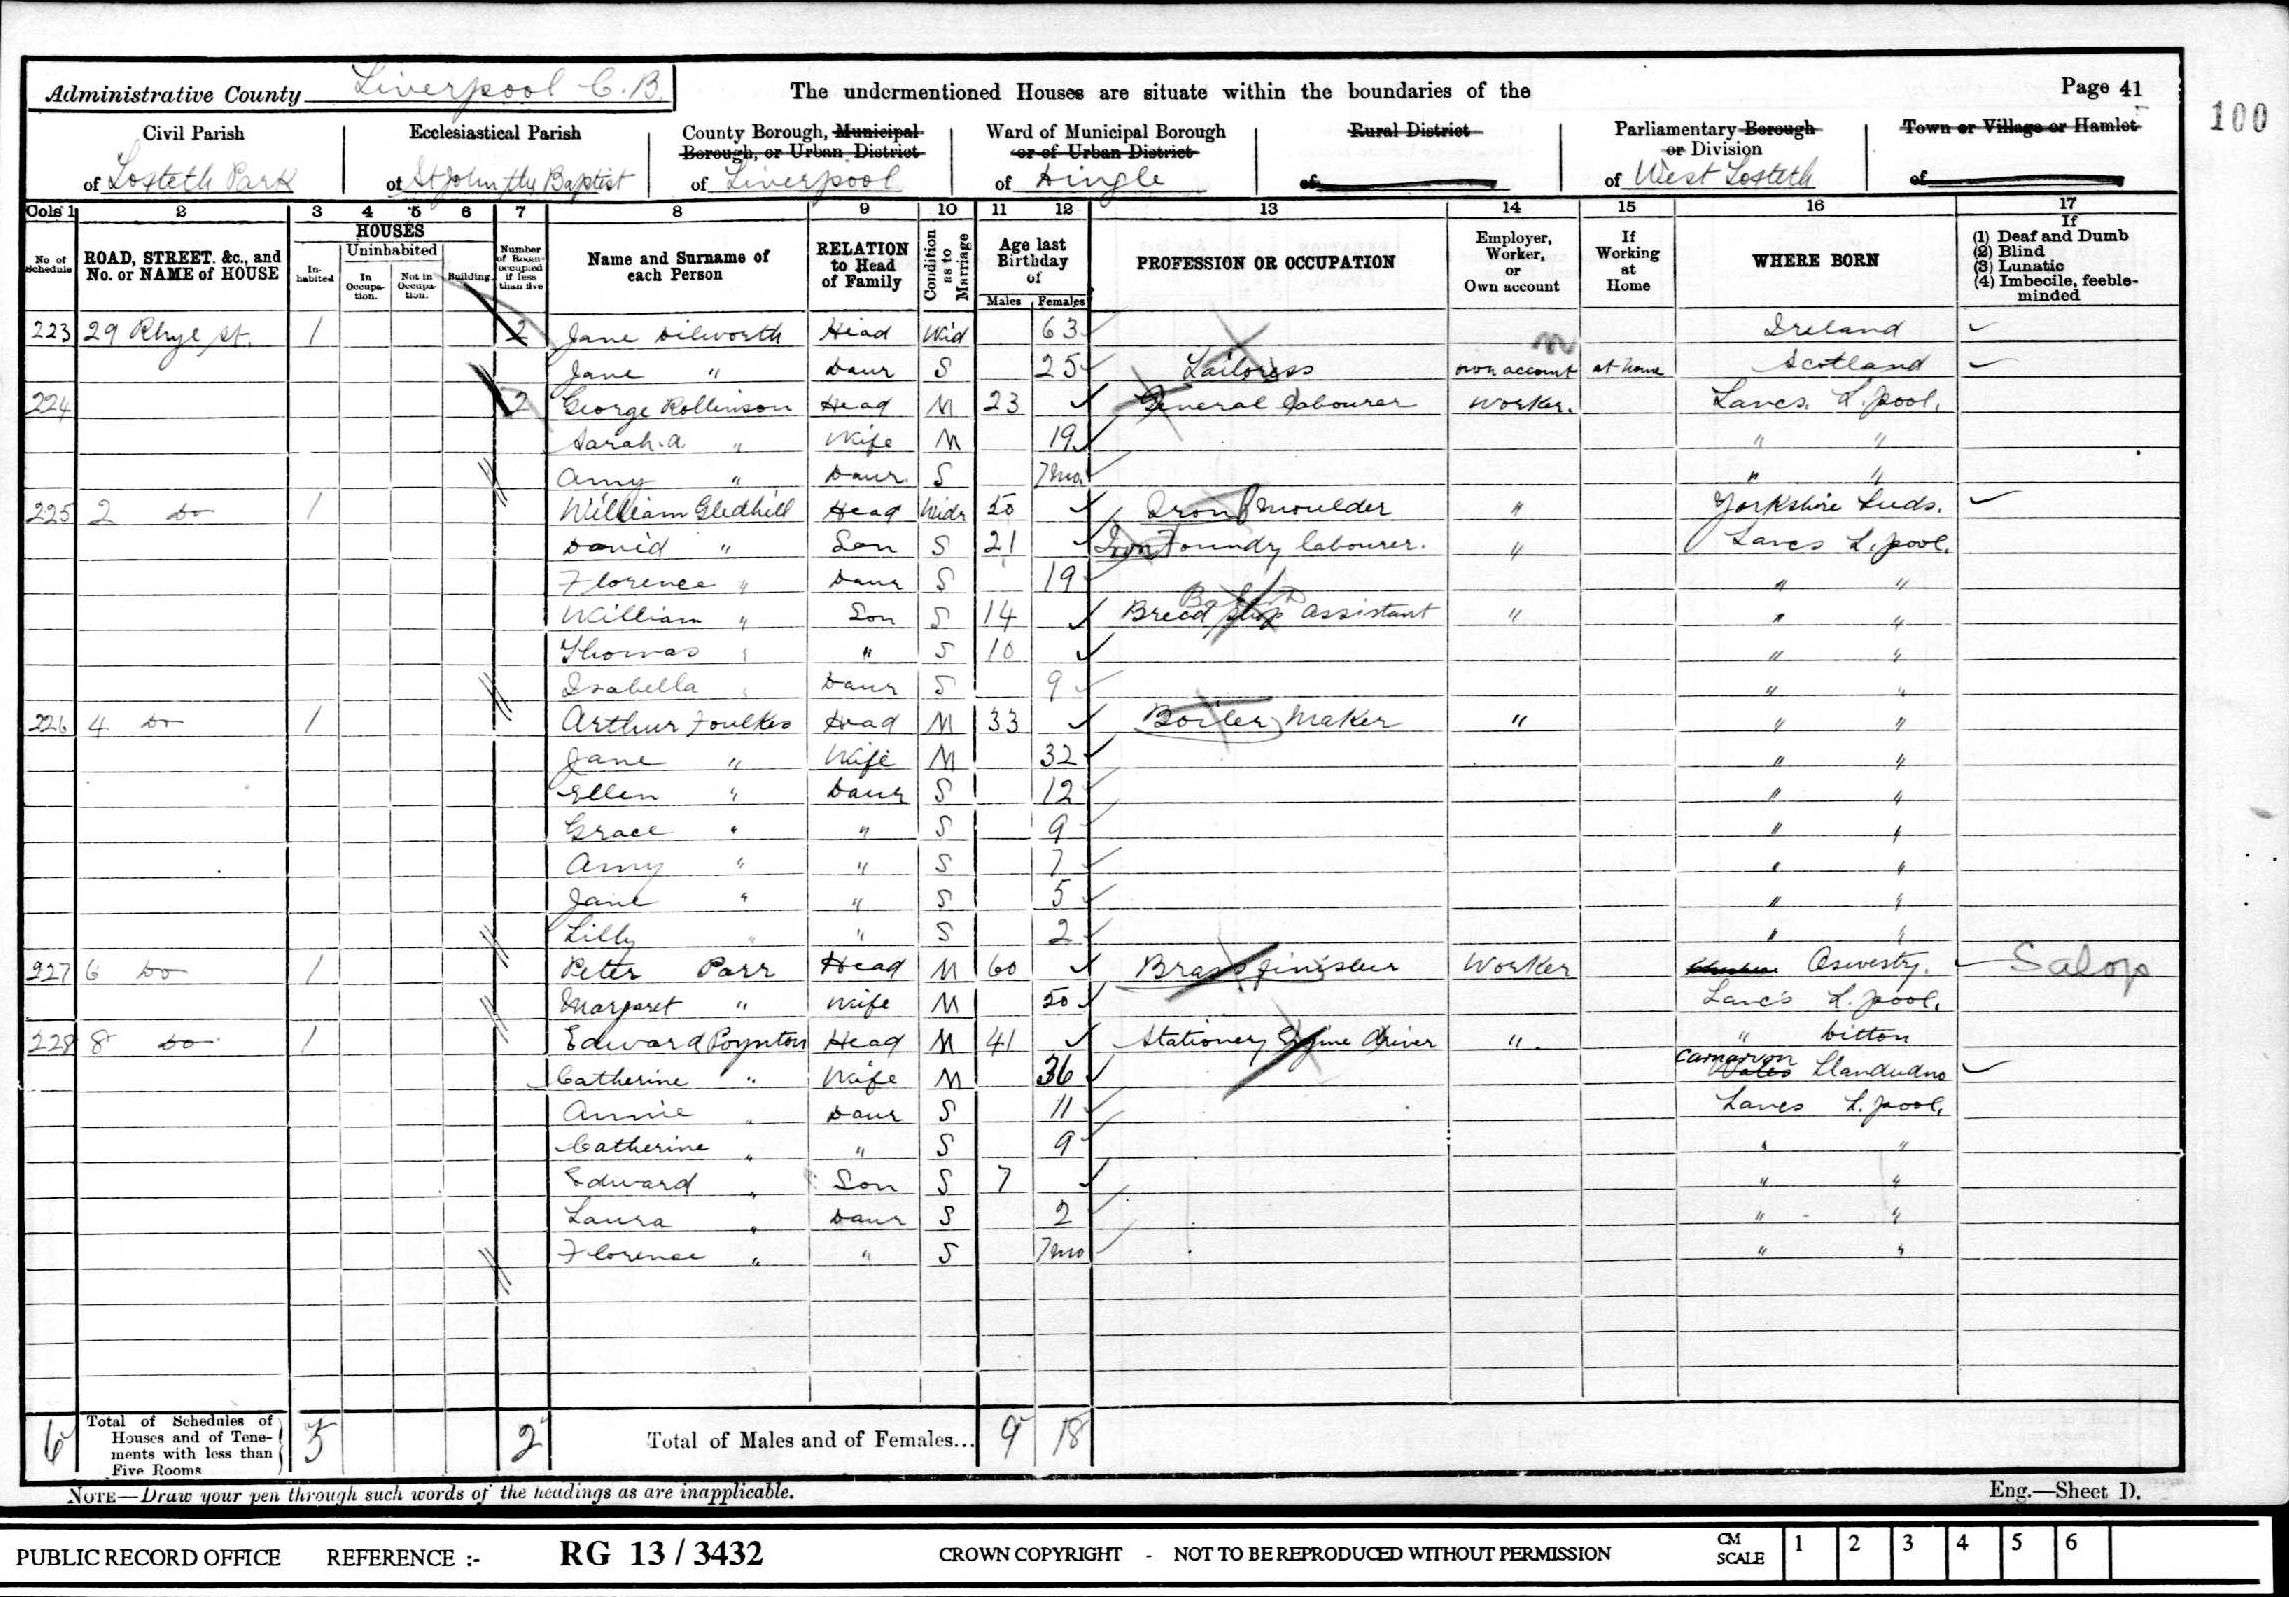 Administrative County Liverpool C.B. The undermentioned Houses are situate within the boundaries of the Page 41
100
Civil Parish Ecclesiastical Parish County Borough, Municipal Borough, or Urban District Ward of Municipal Borough or of Urban District Rural District Parliamentary Borough or Division Town or Village or Hamlet
of Toxteth Park of St John the Baptist of Liverpool of Dingle of of West Toxteth of
Cols 1 2 3 4 5 6 7 8 9 10 11 12 13 14 15 16 17
No. of Schedule ROAD, STREET, &c., and No. or NAME of HOUSE HOUSES Inhabited Uninhabited In Occupation. Not in Occupation. Building Number of Rooms occupied if less than five Name and Surname of each Person RELATION to Head of Family Condition as to Marriage Age last Birthday of Males Females PROFESSION OR OCCUPATION Employer, Worker, or Own account If Working at Home WHERE BORN If (1) Deaf and Dumb (2) Blind (3) Lunatic (4) Imbecile, feeble-minded
223 29 Rhyl St. 1 2 Jane Dilworth Head Wid 63 Ireland
Jane " Daur S 25 Tailoress own account at home Scotland
224 2 George Rollinson Head M 23 General labourer Worker. Lancs. L.pool.
Sarah.A " Wife M 19 " "
Amy " Daur S 7mo " "
225 2 Do 1 William Gledhill Head Widr 50 Iron Moulder " Yorkshire Leeds.
David " Son S 21 Iron Foundry labourer. " Lancs L.pool.
Florence " Daur S 19 " "
William " Son S 14 Bread shop assistant " " "
Thomas " " S 10 " "
Isabella " Daur S 9 " "
226 4 Do 1 Arthur Foulkes Head M 33 Boiler Maker " " "
Jane " Wife M 32 " "
Ellen " Daur S 12 " "
Grace " " S 9 " "
Amy " " S 7 " "
Jane " " S 5 " "
Lilly " " S 2 " "
227 6 Do 1 Peter Parr Head M 60 Brass finisher Worker Oswestry. Salop
Margaret " Wife M 50 Lancs L.pool.
228 8 Do 1 Edward Poynton Head M 41 Stationery Engine driver " " Ditton
Catherine " Wife M 36 Carnarvon Wales Llandudno
Annie " Daur S 11 Lancs L.pool.
Catherine " " S 9 " "
Edward " Son S 7 " "
Laura " Daur S 2 " "
Florence " " S 7mo " "
6 Total of Schedules of Houses and of Tenements with less than Five Rooms 5 2 Total of Males and of Females... 9 18
NOTE—Draw your pen through such words of the headings as are inapplicable. Eng.—Sheet D.
PUBLIC RECORD OFFICE REFERENCE :- RG 13 / 3432 CROWN COPYRIGHT - NOT TO BE REPRODUCED WITHOUT PERMISSION CM SCALE 1 2 3 4 5 6